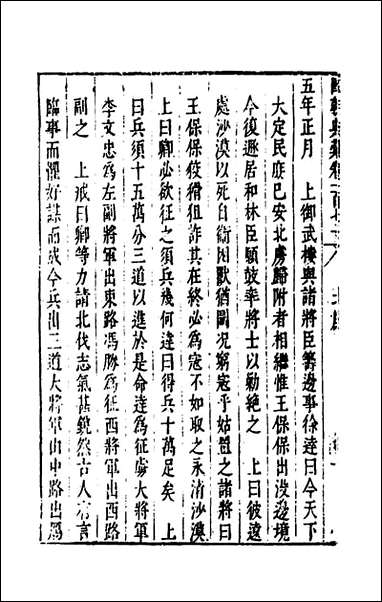 五年正月　上御武樓與諸將臣籌邊事徐達曰今天下
大定民庶巳安北虜歸附者相繼惟王保保出沒邊境
今復遯居和林臣願鼓率將士以勦絶之　上曰彼遠
處沙漠以死自衛困獸猶鬭况窮寇乎姑置之諸將曰
王保保狡猾狙詐其在終必為寇不如取之永清沙漠
上曰卿必欲征之須兵幾何達曰得兵十萬足矣　上
曰兵須十五萬分三道以進於是命達為征虜大將軍
李文忠為左副將軍出東路馮勝為征西將軍出西路
副之　上戒曰卿等力請北伐志氣甚銳然古人有言
臨事而懼好謀而成今兵出三道大將軍由中路出鴈